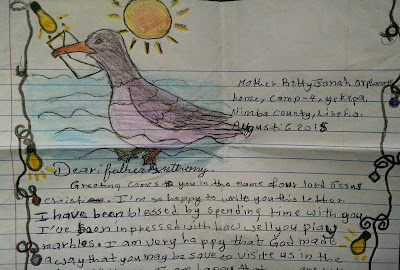 Mother Pretty Jonah orphanage
home, Camp-4, yekepa,
Nimba County, Liberia.
August 6 2015
Dear: father Anthony.
Greeting comes to you in the name of our lord Jesus
Christ. I'm so happy to write you this letter
I have been blessed by spending time with you
I've been inpressed with how well you play
marbles. I am very happy that God made
a way that you may be save to visite us in the
I am happy that